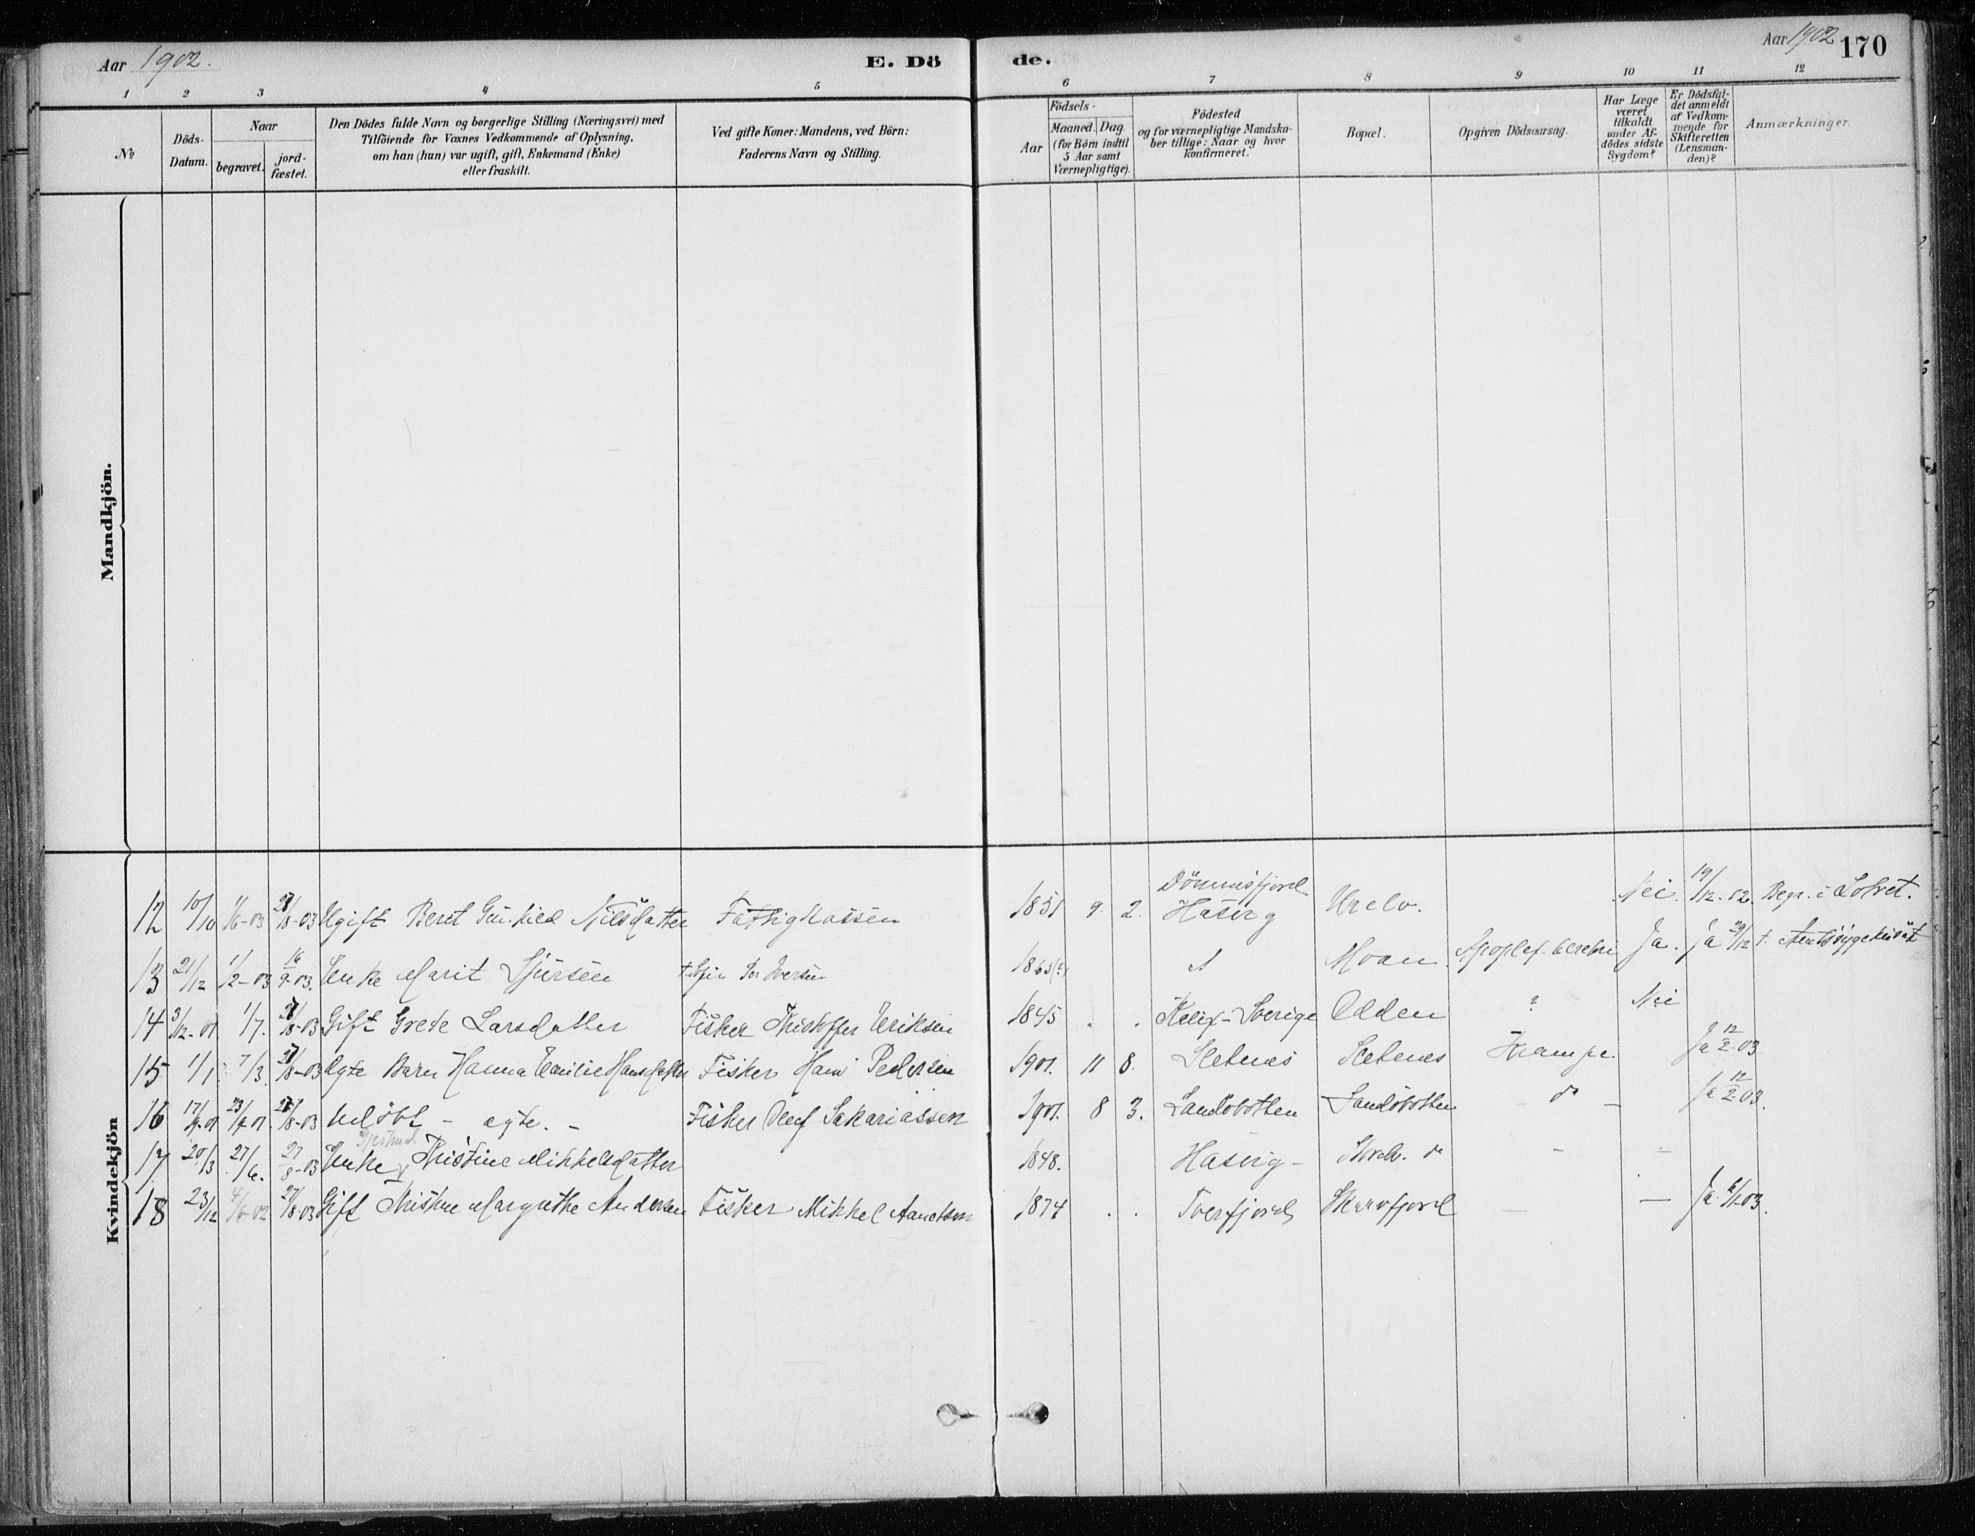 Aar 1902. E. Dö de. Aar 1902 170
1 2 3 4 5 6 7 8 9 10 11 12
№
Döds-Datum.
Naar
begravet.
jordfæstet.
Den Dödes fulde Navn og borgerlige Stilling (Næringsvei) med
Tilföiende for Voxnes Vedkommende af Oplysning,
om han (hun) var ugift, gift, Enkemand (Enke)
eller fraskilt.
Ved gifte Koner: Mandens, ved Börn:
Faderens Navn og Stilling.
Födsels-
Aar
Maaned. Dag.
(for Börn indtil
5 Aar samt
Værnepligtige).
Födested
og for værnepligtige Mandska-
ber tillige: Naar og hvor
konfirmeret.
Bopæl.
Opgiven Dödsaarsag.
Har Læge
været
tilkaldt
under Af-
dödes sidste
Sygdom?
Er Dödsfal-
det anmeldt
af Vedkom-
mende for
Skifteretten
(Lensman-
den)?
Anmærkninger.
Mandkjön.
Kvindekjön
12 10/10 1/6-03 27/8-03 Ugift Beret Gunhild Nilsdatter Fattigkassen 1851 9. 2. Hasvig Nei. 19/12-02. Begr. i
13 21/12 1/2-03 Enke Marit Sjursen Moan Apoplex. cerebri Ja. ja 29/12 t. Amtssygehuset
14 3/12-01. 1/7. 27/8-03 Gift Grete Larsdatter Fisker Kristoffer Eriksen 1845 . . Sverige Odden ? Nei
15 1/1. 7/3. 27/8-03 Ægte Barn Hanna Emilie Hansdatter Fisker Hans Pedersen 1901. 11 8. Sletnes Sletnes Krampe Ja 12/2-03
16 27/8-03 Udöbt - ægte. - Fisker Oluf Sakariassen 1901. 8 3. Sandöbotten Sandöbotten - do - Ja 12/2-03.
17. 20/3 27/6. 27/8-03 Enke Kristine Mikkelsdatter 1848. Hasvig - do - -
18 23/12 27/8-03 Gift Kristine Margrethe Andersen Fisker Mikkel 1874 . . Tverfjord Skarvfjord - - Ja 6/1-03.